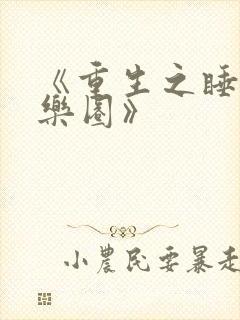 《重生之睡
樂園》
小農民要暴走